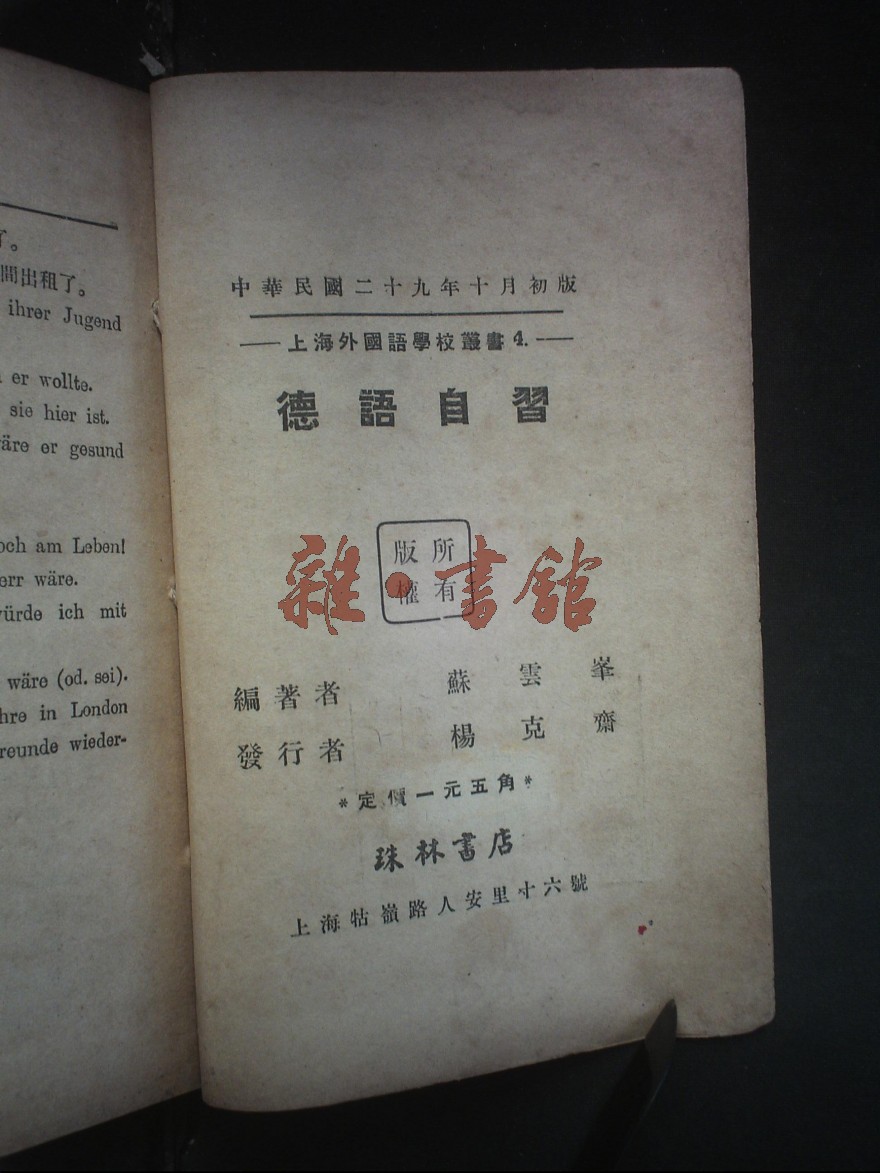 了。
間出租了。
ihrer Jugend
er wollte.
sie hier ist.
wäre er gesund
noch am Leben!
err wäre.
würde ich mit
wäre (od. sei).
hre in London
reunde wieder-
中華民國二十九年十月初版
上海外國語學校叢書4.
德語自習
版權所有
雜·書館
編著者 蘇雲峯
發行者 楊克齋
*定價一元五角*
珠林書店
上海牯嶺路人安里十六號